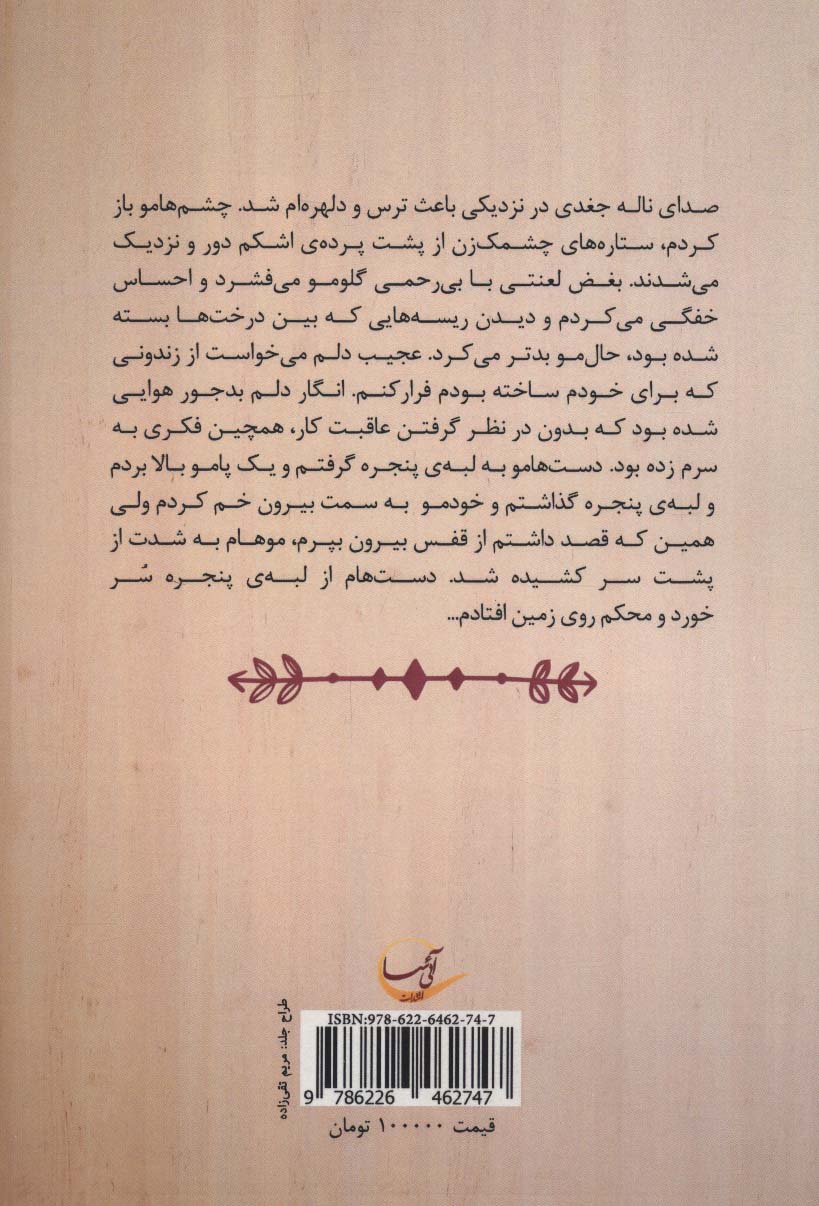 صدای ناله جغدی در نزدیکی باعث ترس و دلهره‌ام شد. چشم‌هامو باز
کردم، ستاره‌های چشمک‌زن از پشت پرده‌ی اشکم دور و نزدیک
می‌شدند. بغض لعنتی با بی‌رحمی گلومو می‌فشرد و احساس
خفگی می‌کردم و دیدن ریسه‌هایی که بین درخت‌ها بسته
شده بود، حال‌مو بدتر می‌کرد. عجیب دلم می‌خواست از زندونی
که برای خودم ساخته بودم فرارکنم. انگار دلم بدجور هوایی
شده بود که بدون در نظر گرفتن عاقبت کار، همچین فکری به
سرم زده بود. دست‌هامو به لبه‌ی پنجره گرفتم و یک پامو بالا بردم
و لبه‌ی پنجره گذاشتم و خودمو به سمت بیرون خم کردم ولی
همین که قصد داشتم از قفس بیرون بپرم، موهام به شدت از
پشت سر کشیده شد. دست‌هام از لبه‌ی پنجره سُر
خورد و محکم روی زمین افتادم...
انتشارات
طراح جلد: مریم تقی‌زاده
ISBN:978-622-6462-74-7
9 786226 462747
قیمت ۱۰۰۰۰۰ تومان